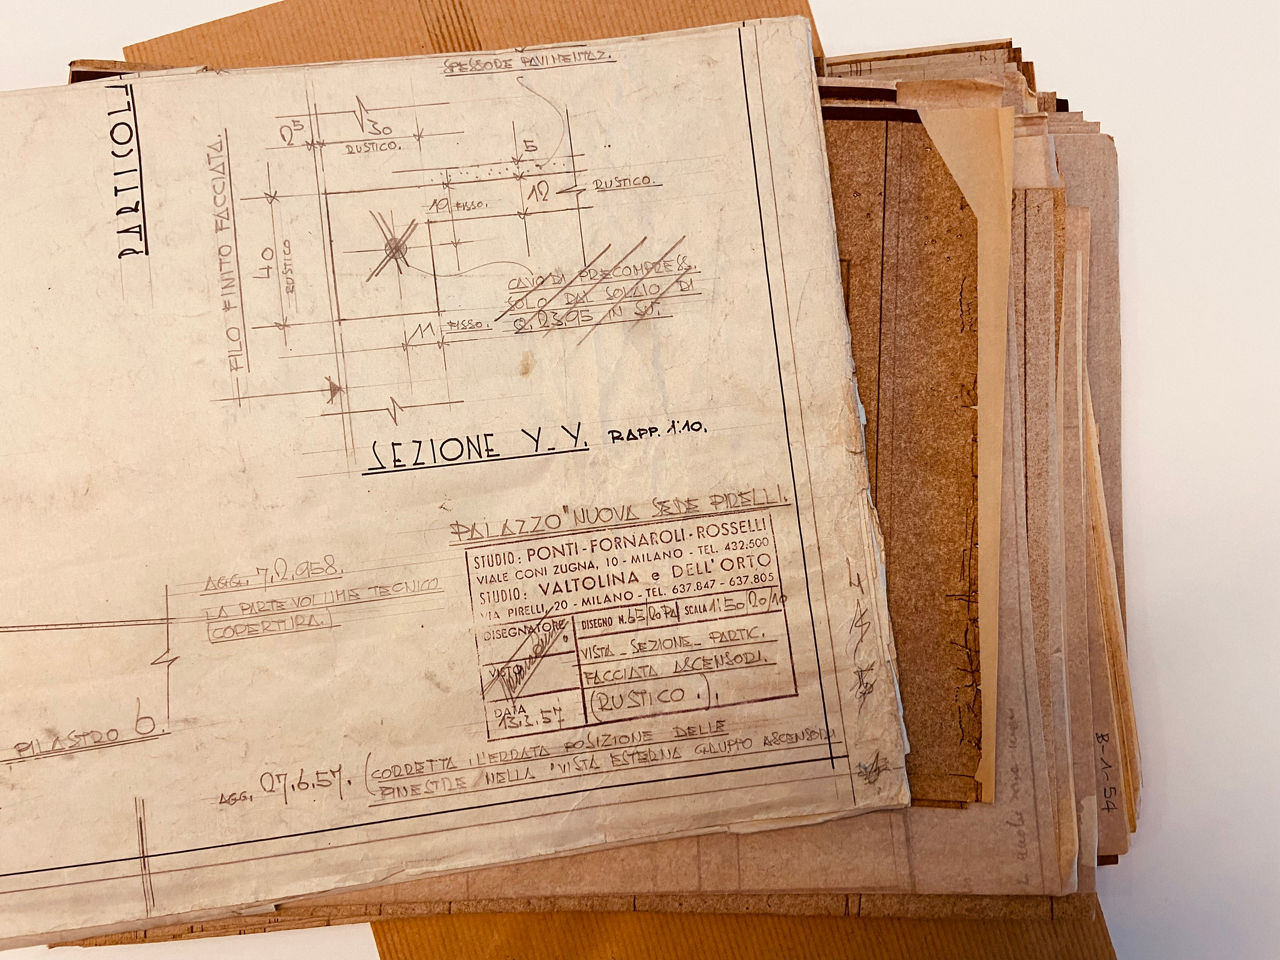 SPESSORE PAVIMENTAZ.
PARTICOL
FILO FINITO FACCIATA.
2⁵
30
RUSTICO.
5
12
RUSTICO.
10 FISSO.
40
RUSTICO
CAVO DI PRECOMPRESS.
SOLO DAL SOLAIO DI
Q. 23.95 IN SU.
11 FISSO.
SEZIONE Y-Y. RAPP. 1:10.
PALAZZO "NUOVA SEDE PIRELLI.
STUDIO: PONTI-FORNAROLI-ROSSELLI
VIALE CONI ZUGNA, 10 - MILANO - TEL. 432.500
STUDIO: VALTOLINA e DELL'ORTO
VIA PIRELLI, 20 - MILANO - TEL. 637.847 - 637.805
DISEGNATORE
DISEGNO N. 65/20 SCALA 1:50/20/10
VISTO
VISTA - SEZIONE - PARTIC.
FACCIATA ASCENSORI.
(RUSTICO.).
DATA
13.3.57
AGG. 7.2.958.
LA PARTE VOLUME TECNICO
(COPERTURA.)
PILASTRO 6.
AGG. 27.6.57. (CORRETTA L'ERRATA POSIZIONE DELLE
FINESTRE NELLA VISTA ESTERNA GRUPPO ASCENSORI
B-1-54